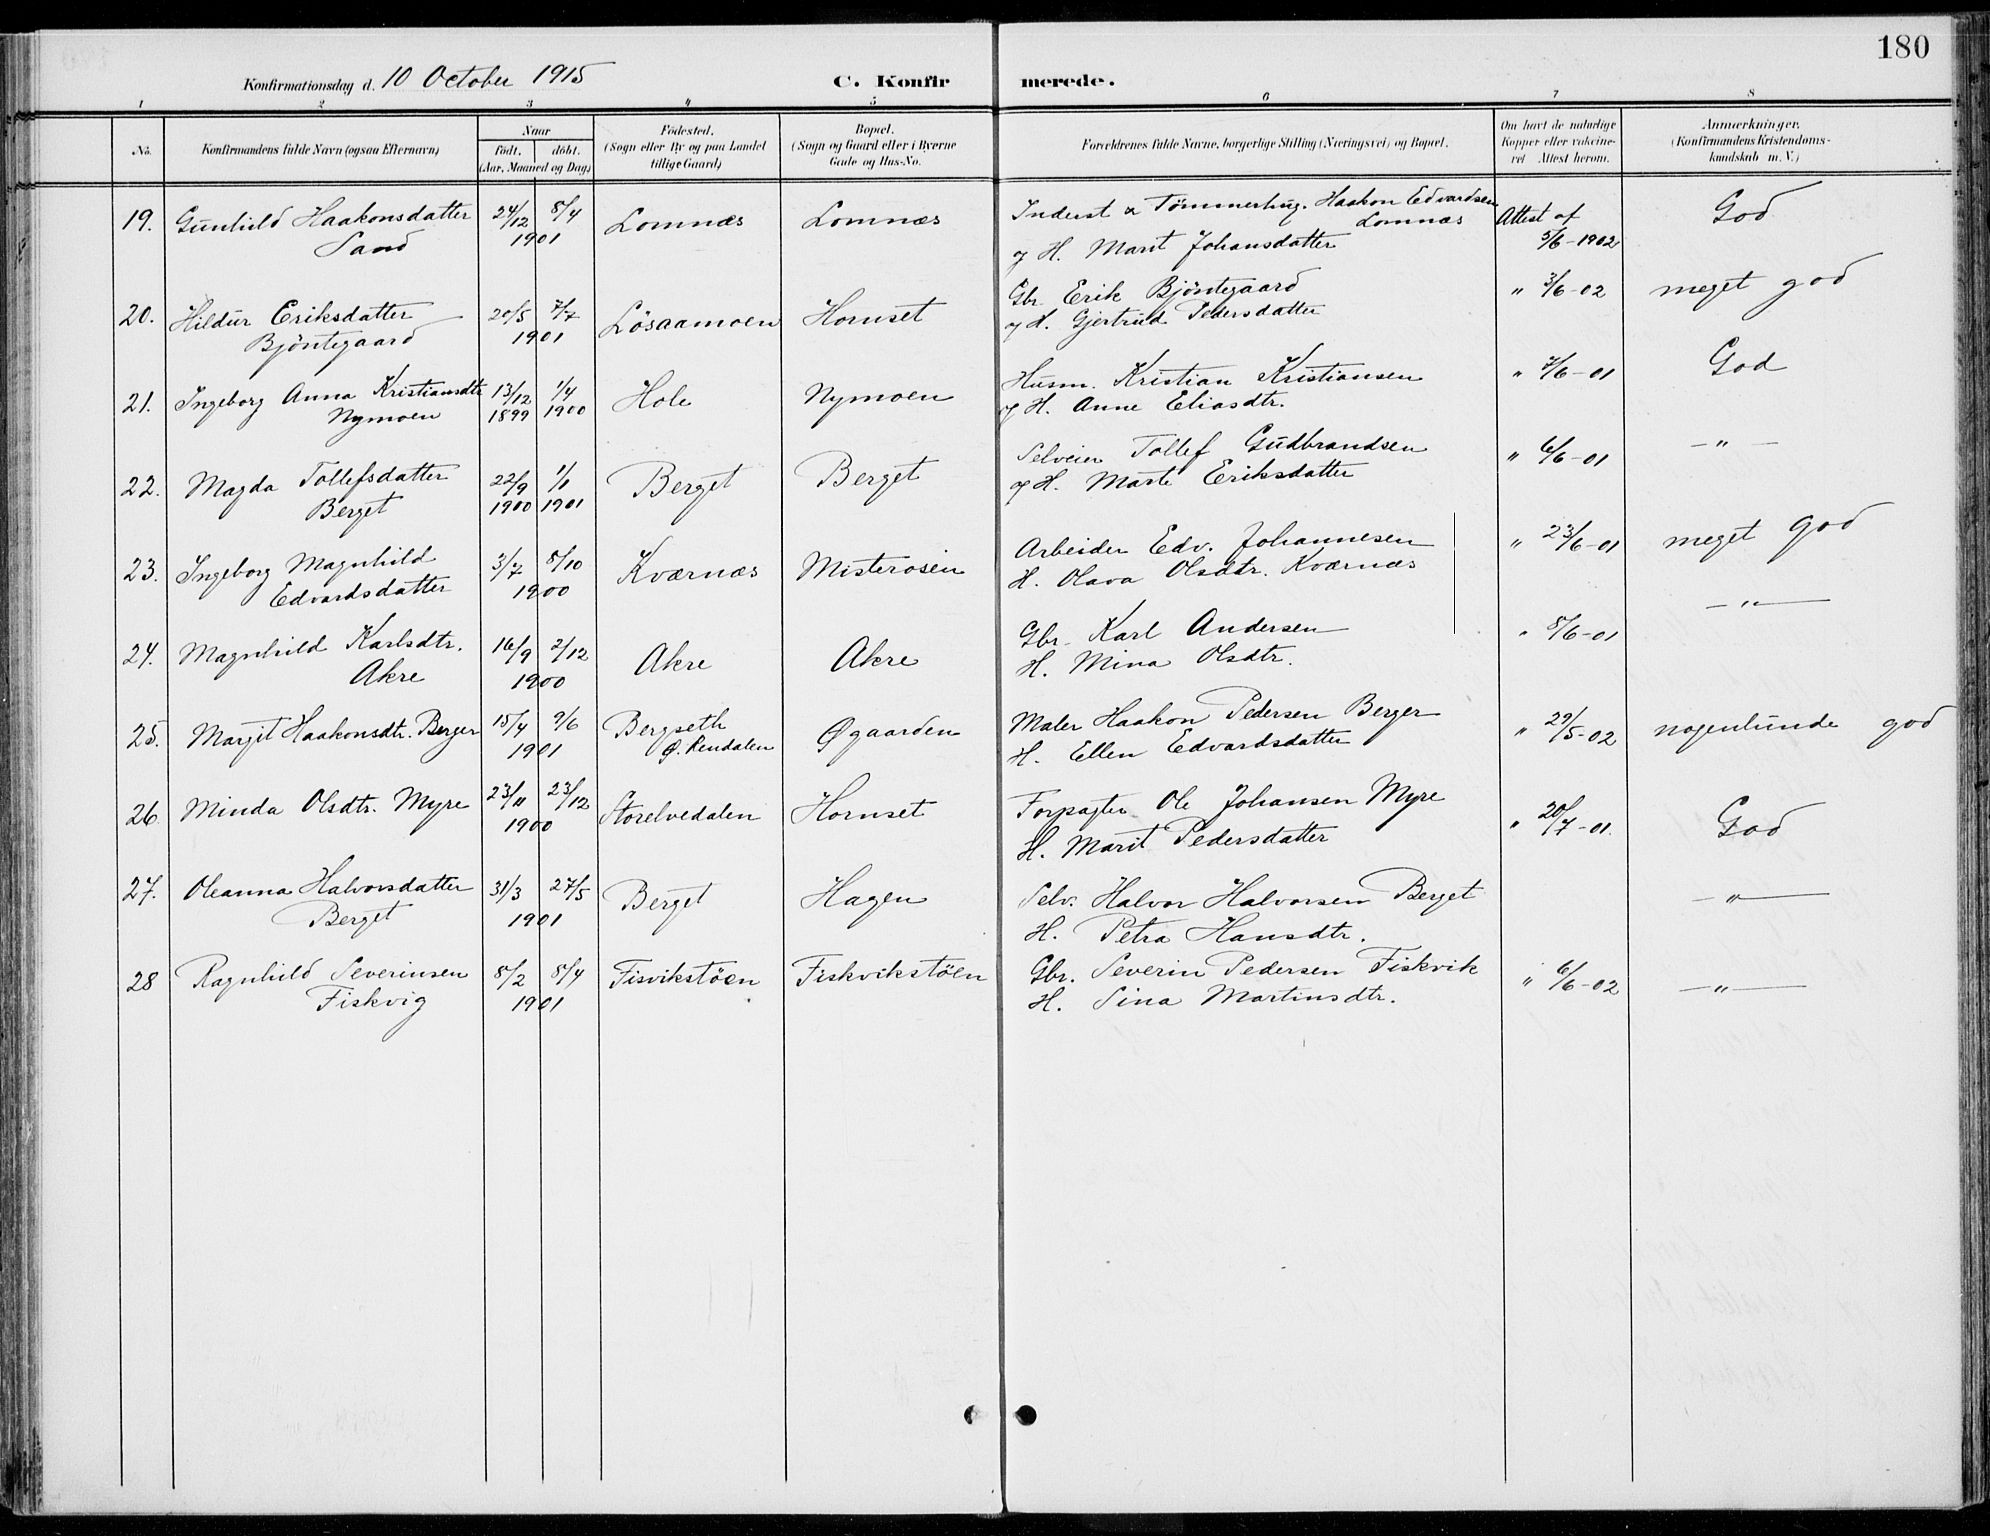 180
Konfirmationsdag d. 10 October 1915 C. Konfirmerede.
1 2 3 4 5 6 7 8
No. Konfirmandens fulde Navn (ogsaa Efternavn) Naar født. døbt. (Aar, Maaned og Dag) Fødested. (Sogn eller By og paa Landet tillige Gaard) Bopæl. (Sogn og Gaard eller i Byerne Gade og Hus-No. Forældrenes fulde Navne, borgerlige Stilling (Næringsvei) og Bopæl. Om havt de naturlige Kopper eller vakcineret Attest herom. Anmærkninger. (Konfirmandens Kristendomskundskab m. V.)
19. Gunhild Haakonsdatter 24/12 8/4 Lomnæs Lomnæs Inderst & Tømmerhug. Haakon Edvardsen Attest af God
Sand 1901 Lomnæs 5/6-1902
og H. Marit Johansdatter
20. Hildur Eriksdatter 20/5 7/7 Lösaamoen Hornset Gbr. Erik Bjöntegaard " 3/6-02 meget god
Bjöntegaard 1901 og H. Gjertrud Pedersdatter
21. Ingeborg Anna Kristiansdtr 13/12 1/4 Hole Nymoen Husm. Kristian Kristiansen " 7/6-01 God
Nymoen 1899 1900 og H. Anne Eliasdtr.
22. Magda Tollefsdatter 22/9 1/1 Berget Berget Selveier Tollef Gudbrandsen " 6/6-01 -"-
Berget 1900 1901 og H. Marte Eriksdatter
23. Ingeborg Magnhild 3/7 8/10 Kværnæs Misterosen Arbeider Edv. Johannesen " 23/6-01 meget god
Edvardsdatter 1900 H. Olava Olsdtr. Kværnæs
24. Magnhild Karlsdtr. 16/9 2/12 Akre Akre Gbr. Karl Andersen " 8/6-01 -"-
Akre 1900 H. Mina Olsdtr.
25. Margit Haakonsdtr. Berger 15/4 9/6 Bergseth Øgaarden Maler Haakon Pedersen Berger " 29/5-02 nogenlunde god
1901 Ø. Rendalen H. Ellen Edvardsdatter
26. Minda Olsdtr. Myre 23/11 23/12 Storelvedalen Hornset Forpagter Ole Johansen Myre " 20/7-01. God
1900 H. Marit Pedersdatter
27. Oleanna Halvorsdatter 31/3 27/5 Berget Hagen Selv. Halvor Halvorsen Berget -"-
Berget 1901 H. Petra Hansdtr.
28 Ragnhild Severinsen 8/2 8/4 Fisvikstöen Fiskvikstöen Gbr. Severin Pedersen Fiskvik " 6/6-02 -"-
Fiskvig 1901 H. Sina Martinsdtr.